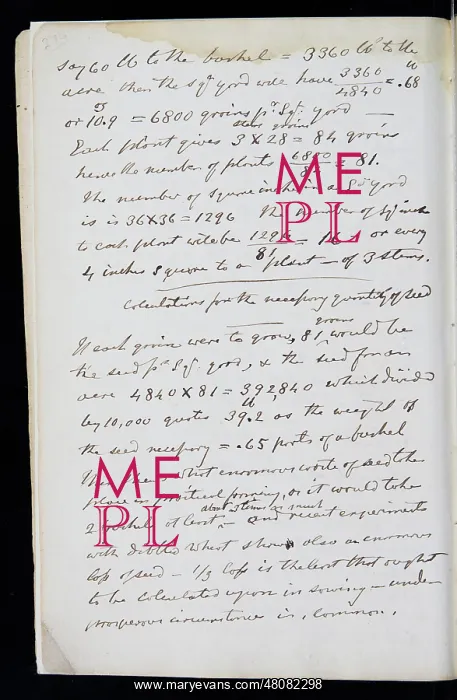 say 60 lb to the bushel = 3360 lbs to the
acre then the Sqr yard will have 3360/4840 = .68 lb
or 10.9 oz = 6800 grains pr Sqr. yard —
Each plant gives 3 stems X 28 grains = 84 grains
hence the number of plants 6800/ = 81.
The number of Square inches in a Sqr yard
is is 36X36 = 1296 The number of Sqr inch
to each plant will be 129 /81 = or every
4 inches Square to a plant — of 3 stems.
Calculations for the necessary quantity of seed
If each grain were to grow, 81 grains would be
the seed pr Sqr. yard, & the seed for an
acre 4840 X 81 = 392,840 which divided
by 10,000 quotes 39.2 lb as the weight of
the seed necessary = .65 parts of a bushel
that enormous waste of seed takes
place in practical farming, as it would take
2 bushels at least — and recent experiments
with dibbled wheat show also an enormous
loss of seed — 1/3 loss is the least that ought
to be calculated upon in sowing — under
prosperous circumstances is, common.
ME
PL
ME
PL
www.maryevans.com 48082298